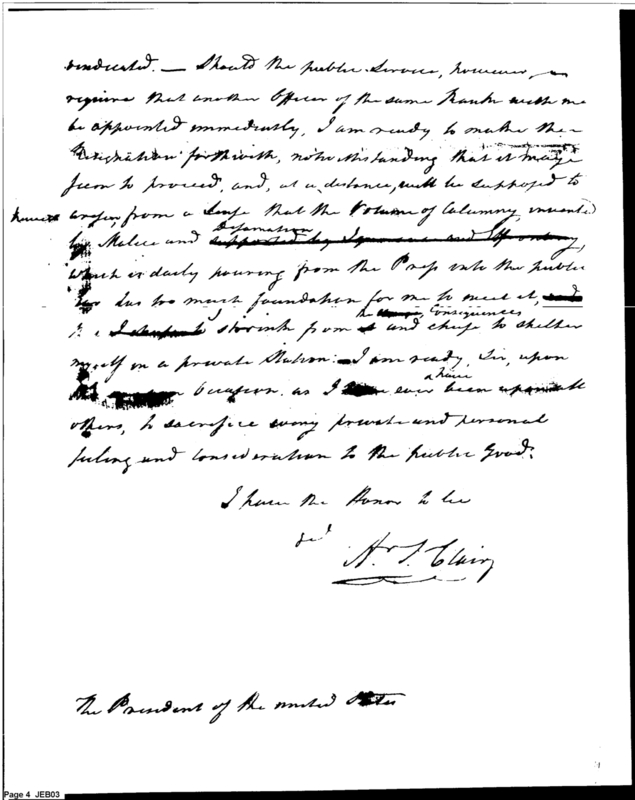 vindicated. — Should the public Service, however,
require that another Officer of the same Rank with me
be appointed immediately, I am ready to make the
Resignation forthwith, notwithstanding that it may
seem to proceed, and, at a distance, will be supposed to
from a Sense that the Volume of Calumny, invented
by Malice and Defamation supported by Ignorance and Effrontery,
which is daily pouring from the Press into the public
has too much foundation for me to meet it, and
I shrink from it and Consequences chuse to shelter
myself in a private Station: — I am ready, Sir, upon
Occasion as I have ever been upon all
others, to sacrifice every private and personal
feeling and consideration to the public Good.
I have the Honor to be
Ar. St. Clair
The President of the united States
Page 4 JEB03